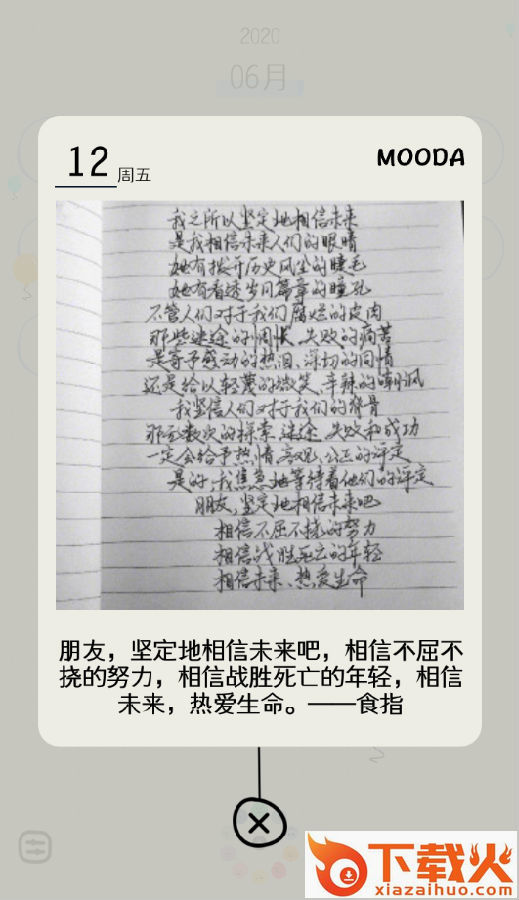 2020
06月
12 周五
MOODA
我之所以坚定地相信未来
是我相信未来人们的眼睛
她有拨开历史风尘的睫毛
她有看透岁月篇章的瞳孔
不管人们对于我们腐烂的皮肉
那些迷途的惆怅、失败的痛苦
是寄予感动的热泪、深切的同情
还是给以轻蔑的微笑、辛辣的嘲讽
我坚信人们对于我们的脊骨
那无数次的探索、迷途、失败和成功
一定会给予热情、客观、公正的评定
是的,我焦急地等待着他们的评定
朋友,坚定地相信未来吧
相信不屈不挠的努力
相信战胜死亡的年轻
相信未来、热爱生命
朋友，坚定地相信未来吧，相信不屈不
挠的努力，相信战胜死亡的年轻，相信
未来，热爱生命。——食指
下载火
xiazaihuo.com